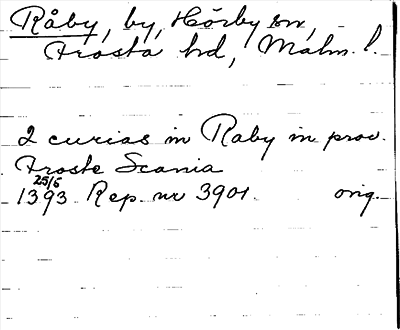 Råby, by, Hörby sn,
Frosta hd, Malm. l.
2 curias in Raby in prov.
Froste Scania
25/5
1393 Rep. nr 3901. orig.